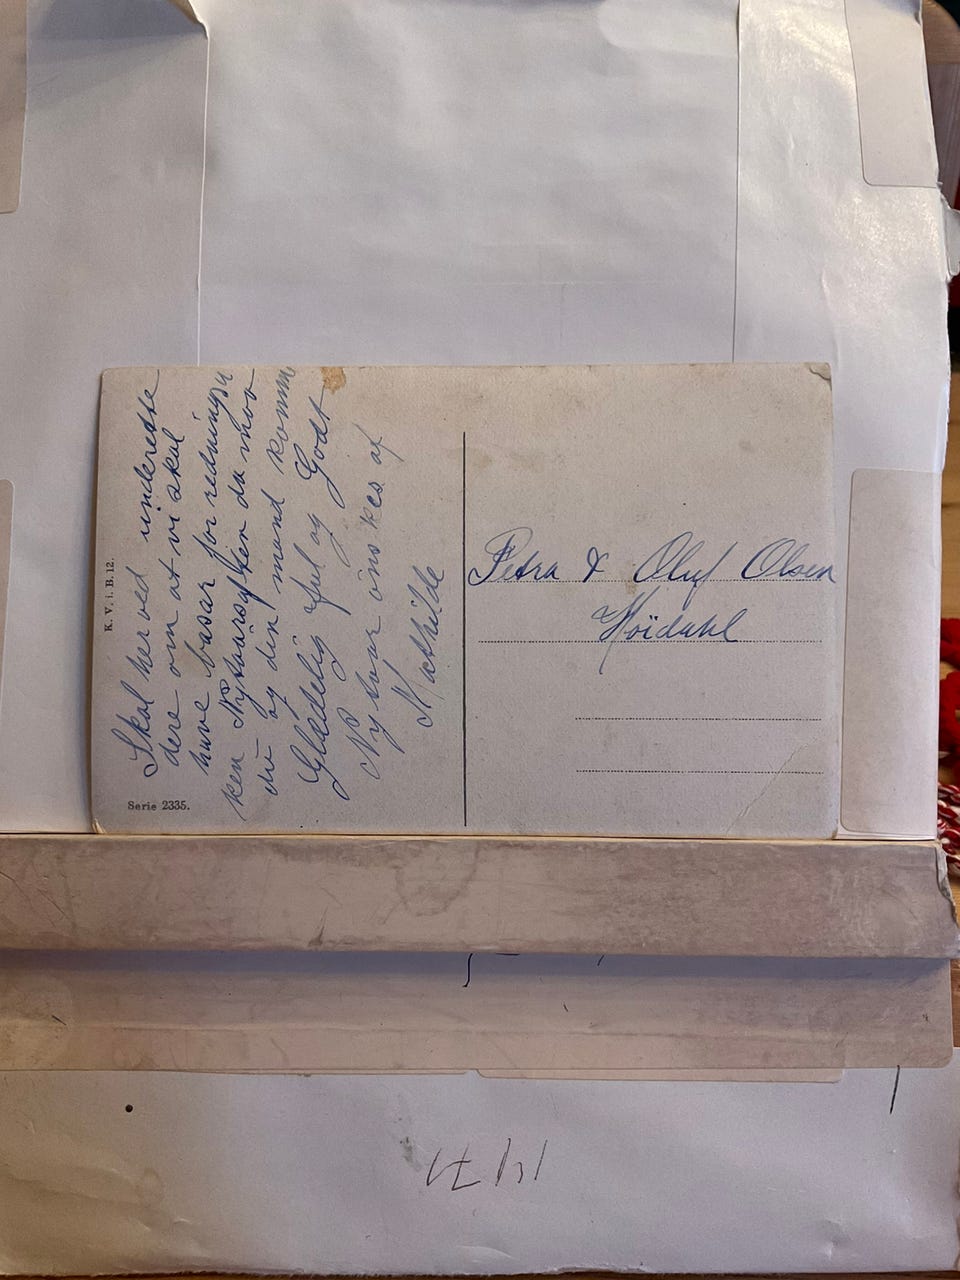 Skal herved underrette
dere om at vi skal
have basar for redningsu
ken Nytaarsaften da maa
du og din mand komme
Glædelig Jul og Godt
Nytaar önskes af
Mathilde
K. V. i. B. 12.
Serie 2335.
Petra & Oluf Olsen
Höidahl